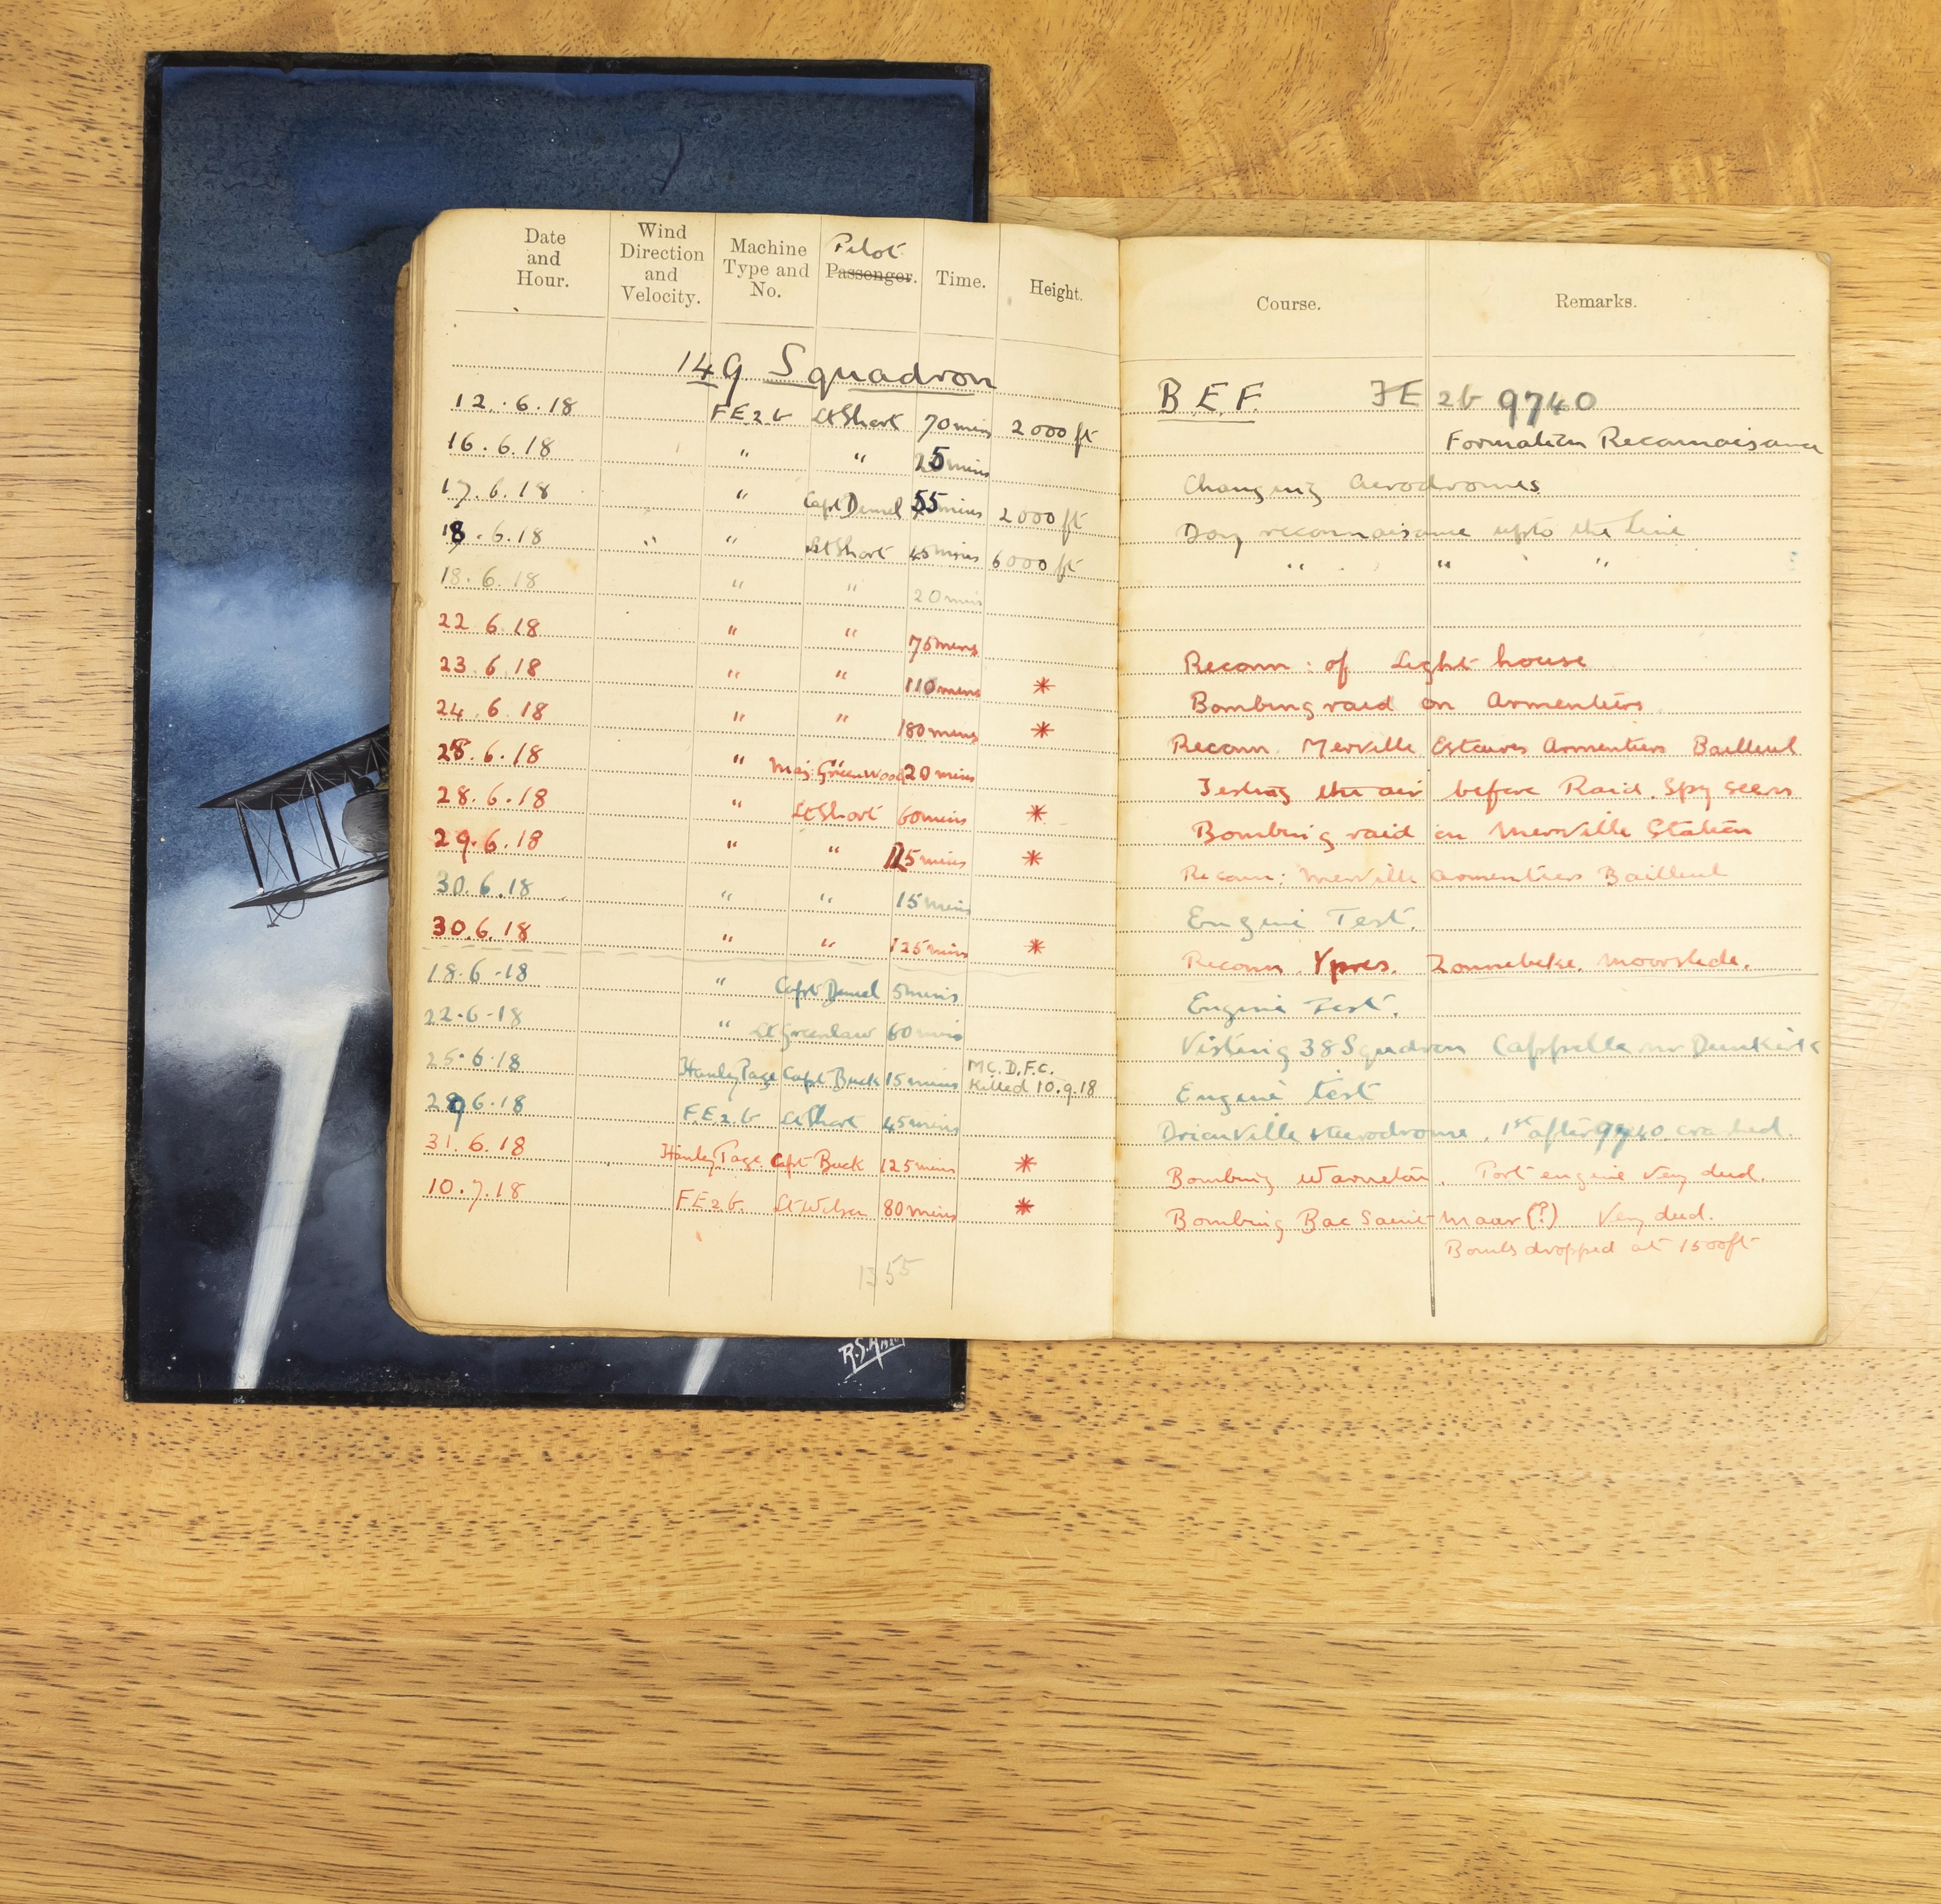 Date and Hour. Wind Direction and Velocity. Machine Type and No. Pilot Passenger. Time. Height. Course. Remarks.
149 Squadron B.E.F. FE 2b 9740
12.6.18 F.E.2.b Lt Short 70 mins 2000 ft Formation Reconnaisance
16.6.18 " " 25 mins Changing Aerodromes
17.6.18 " Capt 55 mins 2000 ft Day reconnaisance upto the Line
18.6.18 " " Lt Short 45 mins 6000 ft " " "
18.6.18 " " 20 mins
22.6.18 " " 75 mins Reconn: of Light house
23.6.18 " " 110 mins * Bombing raid on Armentiers
24.6.18 " " 180 mins * Reconn. Merville Estaires Armentiers Bailleul
28.6.18 " Maj. Greenwood 20 mins Testing the air before Raid. Spy seen
28.6.18 " Lt Short 60 mins * Bombing raid on Merville Station
29.6.18 " " 125 mins * Reconn: Merville Armentiers Bailleul
30.6.18 " " 15 mins Engine Test.
30.6.18 " " 125 mins * Reconn. Ypres. Zonnebeke. Moorslede.
18.6.18 " Capt 5 mins Engine Test.
22.6.18 " Lt Greenlaw 60 mins Visting 38 Squadron Cappelle nr Dunkirk
25.6.18 Hanley Page Capt Buck 15 mins M.C. D.F.C. Killed 10.9.18 Engine test
29.6.18 F.E.2.b Lt Short 45 mins Aerodrome, 1st after 9740 crashed.
31.6.18 Hanley Page Capt Buck 125 mins * Bombing Warneton. Port engine very dud.
10.7.18 F.E.2.b. Lt Wilson 80 mins * Bombing Bac Saint-Maur (?) Very dud.
Bombs dropped at 1500ft
1355